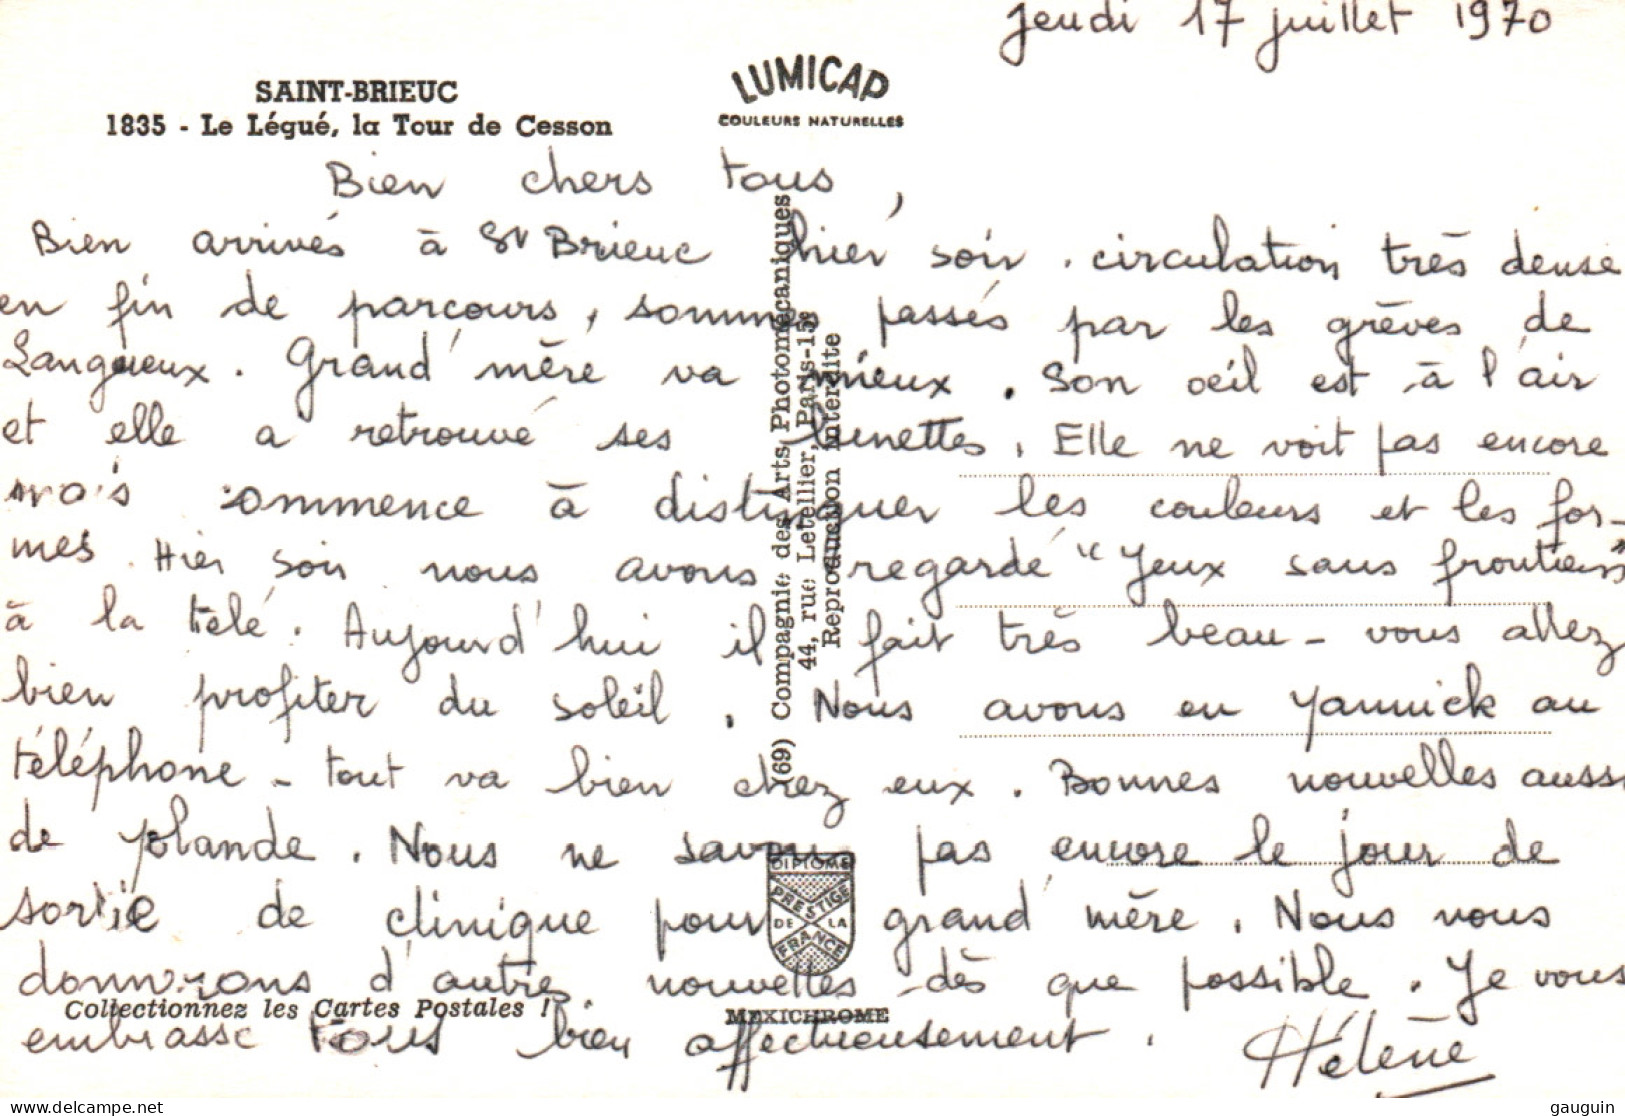 Jeudi 17 juillet 1970
SAINT-BRIEUC
1835 - Le Légué, la Tour de Cesson
LUMICAP
COULEURS NATURELLES
Bien chers tous,
Bien arrivés à St Brieuc hier soir. circulation très dense
en fin de parcours, sommes passés par les grèves de
Langueux. Grand'mère va mieux. Son oeil est à l'air
et elle a retrouvé ses lunettes. Elle ne voit pas encore
mais commence à distinguer les couleurs et les for-
mes. Hier soir nous avons regardé "Jeux sans frontières"
à la télé. Aujourd'hui il fait très beau - vous allez
bien profiter du soleil. Nous avons eu Yannick au
téléphone - tout va bien chez eux. Bonnes nouvelles aussi
de Yolande. Nous ne savons pas encore le jour de
sortie de clinique pour grand'mère. Nous vous
donnerons d'autres nouvelles dès que possible. Je vous
embrasse tous bien affectueusement.
Hélène
(69) Compagnie des Arts Photomécaniques
44, rue Letellier, Paris-15e
Reproduction interdite
DIPLOME
PRESTIGE
DE LA
FRANCE
MEXICHROME
Collectionnez les Cartes Postales !
delcampe.net
gauguin